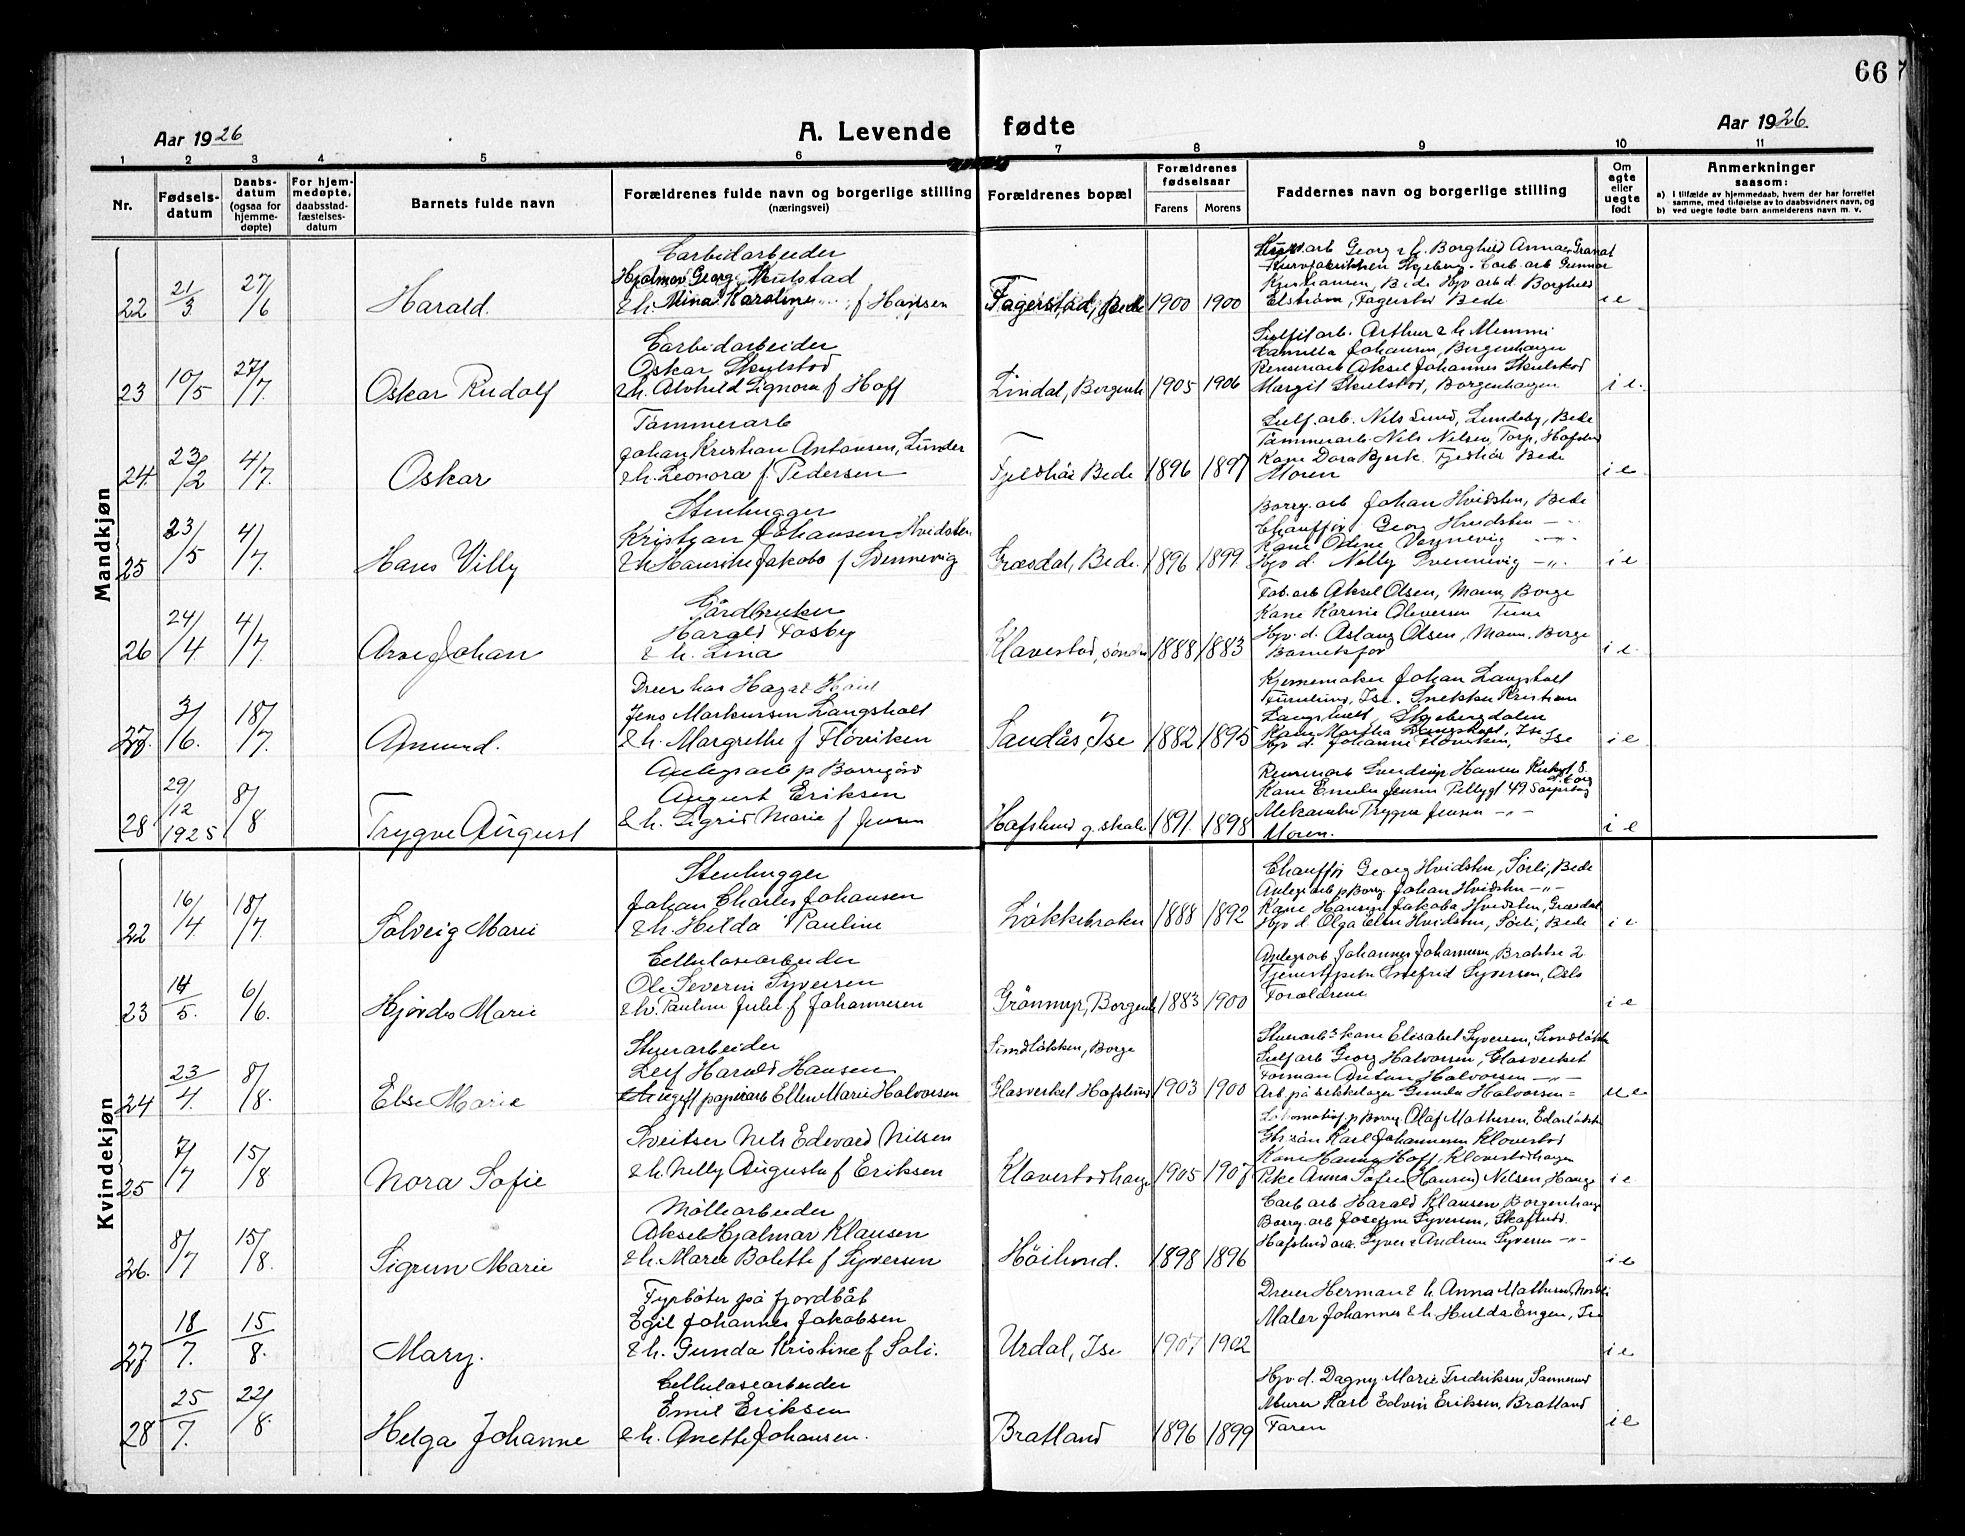 66
Aar 1926
A. Levende fødte
Aar 1926
1 2 3 4 5 6 7 8 9 10 11
Nr.
Fødsels-
datum
Daabs-
datum
(ogsaa for
hjemme-
døpte)
For hjem-
medøpte,
daabsstad-
fæstelses-
datum
Barnets fulde navn
Forældrenes fulde navn og borgerlige stilling
(næringsvei)
Forældrenes bopæl
Forældrenes
fødselsaar
Farens Morens
Faddernes navn og borgerlige stilling
Om
egte
eller
uegte
født
Anmerkninger
saasom:
a) I tilfælde av hjemmedaab, hvem der har forrettet
samme, med tilføielse av to daabsvidners navn, og
b) ved uegte fødte barn anmelderens navn m. v.
Mandkjøn
22 21/3 27/6 Harald.
Carbidarbeider
Hjalmar Georg Skulstad
& h. Mina Karoline f Hansen
Fagerstad, Bede 1900 1900
Georg & h. Borghild Annae Granat
Elstrøm, Fagerstad Bede
i e
23 10/5 27/7 Oskar Rudolf
Carbidarbeider
Oskar Skulstad
& h. Alvhild Signora f Hoff
Lindal, Borgenh 1905 1906
Sulfitarb. Arthur & h Memmi
Camilla Johansen, Borgenhaugen
Rensearb Aksel Johannes Skulstad
Margit Skulstad, Borgenhaugen
i e.
24. 23/2 4/7. Oskar
Tømmerarb
Johan Kristian Antonsen, Lunder
& h. Leonora f. Pedersen
Fjeldhås Bede 1896 1897
Sulf. arb. Nils Lund, Lundeby, Bede
Tømmerarb. Nils Nilsen, Torp, Hafslund
Kone Dora Bjerk. Fjeldhås Bede
Moren
i e
25 23/5 4/7. Hans Villy
Stenhugger
Kristian Johansen Hvidsten
& h Hansine Jakoba f Svennevig
Græsdal, Bede. 1896 1899
Borry. arb Johan Hvidsten, Bede
Chauffør Georg Hvidsten — " -
Kone Odine Vognevig — " -
Hjv d. Nelly Svennevig — " -
i e
26 24/4 4/7. Arve Johan
Gårdbruker
Harald Fosby
& h. Lina
Klavestad, søndre 1888 1883
Fab. arb Aksel Olsen, Moum, Borge
Kone Karine Oliversen Tune
Hjv. d. Aslaug Olsen, Moum. Borge
Barnets far
i e.
27. 3/6. 18/7. Amund.
Jens Markussen Langsholt
& h. Margrethe f Fløviken
Sandås, Ise 1882 1895
Johan Langsholt
Ise. Snekker Kristian
Langsholt, Skjebergdalen
Kone Martha Langsholt, Ise
Hjv d. Johanne Fløviken, Ise
i e
28 29/12 1925 8/8 Trygve August
Anlegsarb p Borregård
August Eriksen
& h. Sigrid Marie f Jensen
Hafslund g. skole 1891. 1898
Kone Emilie Jensen Pellygt 49 Sarpsborg
Trygve Jensen — " -
Moren.
i e
Kvindekjøn
22 16/4 18/7. Solveig Marie
Stenhugger
Johan Charles Johansen
& h. Hilda Pauline
Løkkebroken 1888 1892
Chauffør Georg Hvidsten, Sørli, Bede
Anlegsarb p Borg. Johan Hvidsten — " -
Kone Hansine Jakoba Hvidsten, Græsdal
Hjv d. Olga Elm Hvidsten, Sørli, Bede
i e
23 14/5. 6/6. Hjørdis Marie
Cellulosearbeider
Ole Severin Syversen
& h. Pauline Julie f Johannesen
Grönmyr, Borgenh 1883 1900
Anlegsarb Johannes Johannesen, Brattse 2
Tjenestepike Syversen, Oslo
Forældrene
i e
24 23/4. 8/8. Else Marie
Stuerarbeider
Leif Harald Hansen
& ugift papirarb Ellen Marie Halvorsen
Sundløkken, Borge
Glasverket Hafslund 1903 1900
Stuerarb's kone Elisabet Syversen, Sundløkken
Sulf arb Georg Halvorsen, Glasverket
Forman Anton Halvorsen — " -
Arb på sekkelager Gunda Halvorsen =
u e
25 7/7 15/8 Nora Sofie
Sveitser Nils Edvard Nilsen
& h. Nelly Augusta f Eriksen
Klavestadhaugen 1905 1907
Lokomotivf. p Borry. Olaf Mathisen, Edarløkken
Karl Johannesen Klavestad
Kone Hanna Hoff, Klavestadhaugen
Pike Anna Sofie (Hansen) Nilsen, Hauge
i e
26. 8/7 15/8. Sigrun Marie
Møllearbeider
Aksel Hjalmar Klausen
& h. Marie Bolette f Syversen
Höilund. 1898 1896
Carb arb Harald Klausen Borgenhaug
Borry. arb Josefine Syversen, Skaflestad
Hafslund arb. Syver & Andrine Syversen — " -
i e
27. 18/7. 15/8. Mary.
Fyrbøter på fjordbåt
Egil Johannes Jakobsen
& h. Gunda Kristine f Soli.
Urdal, Ise 1907 1902
Dreier Herman & h Anna Mathisen, Nordli
Maler Johannes & h Hulda Engen, Ise
i e
28 25/7. 22/8. Helga Johanne
Cellulosearbeider
Emil Eriksen
& h. Anette Johansen.
Bratland 1896 1899
Hjv. d. Dagny Marie Fredriksen, Sannesund
Murer Karl Edvin Eriksen, Bratland
Faren
i e